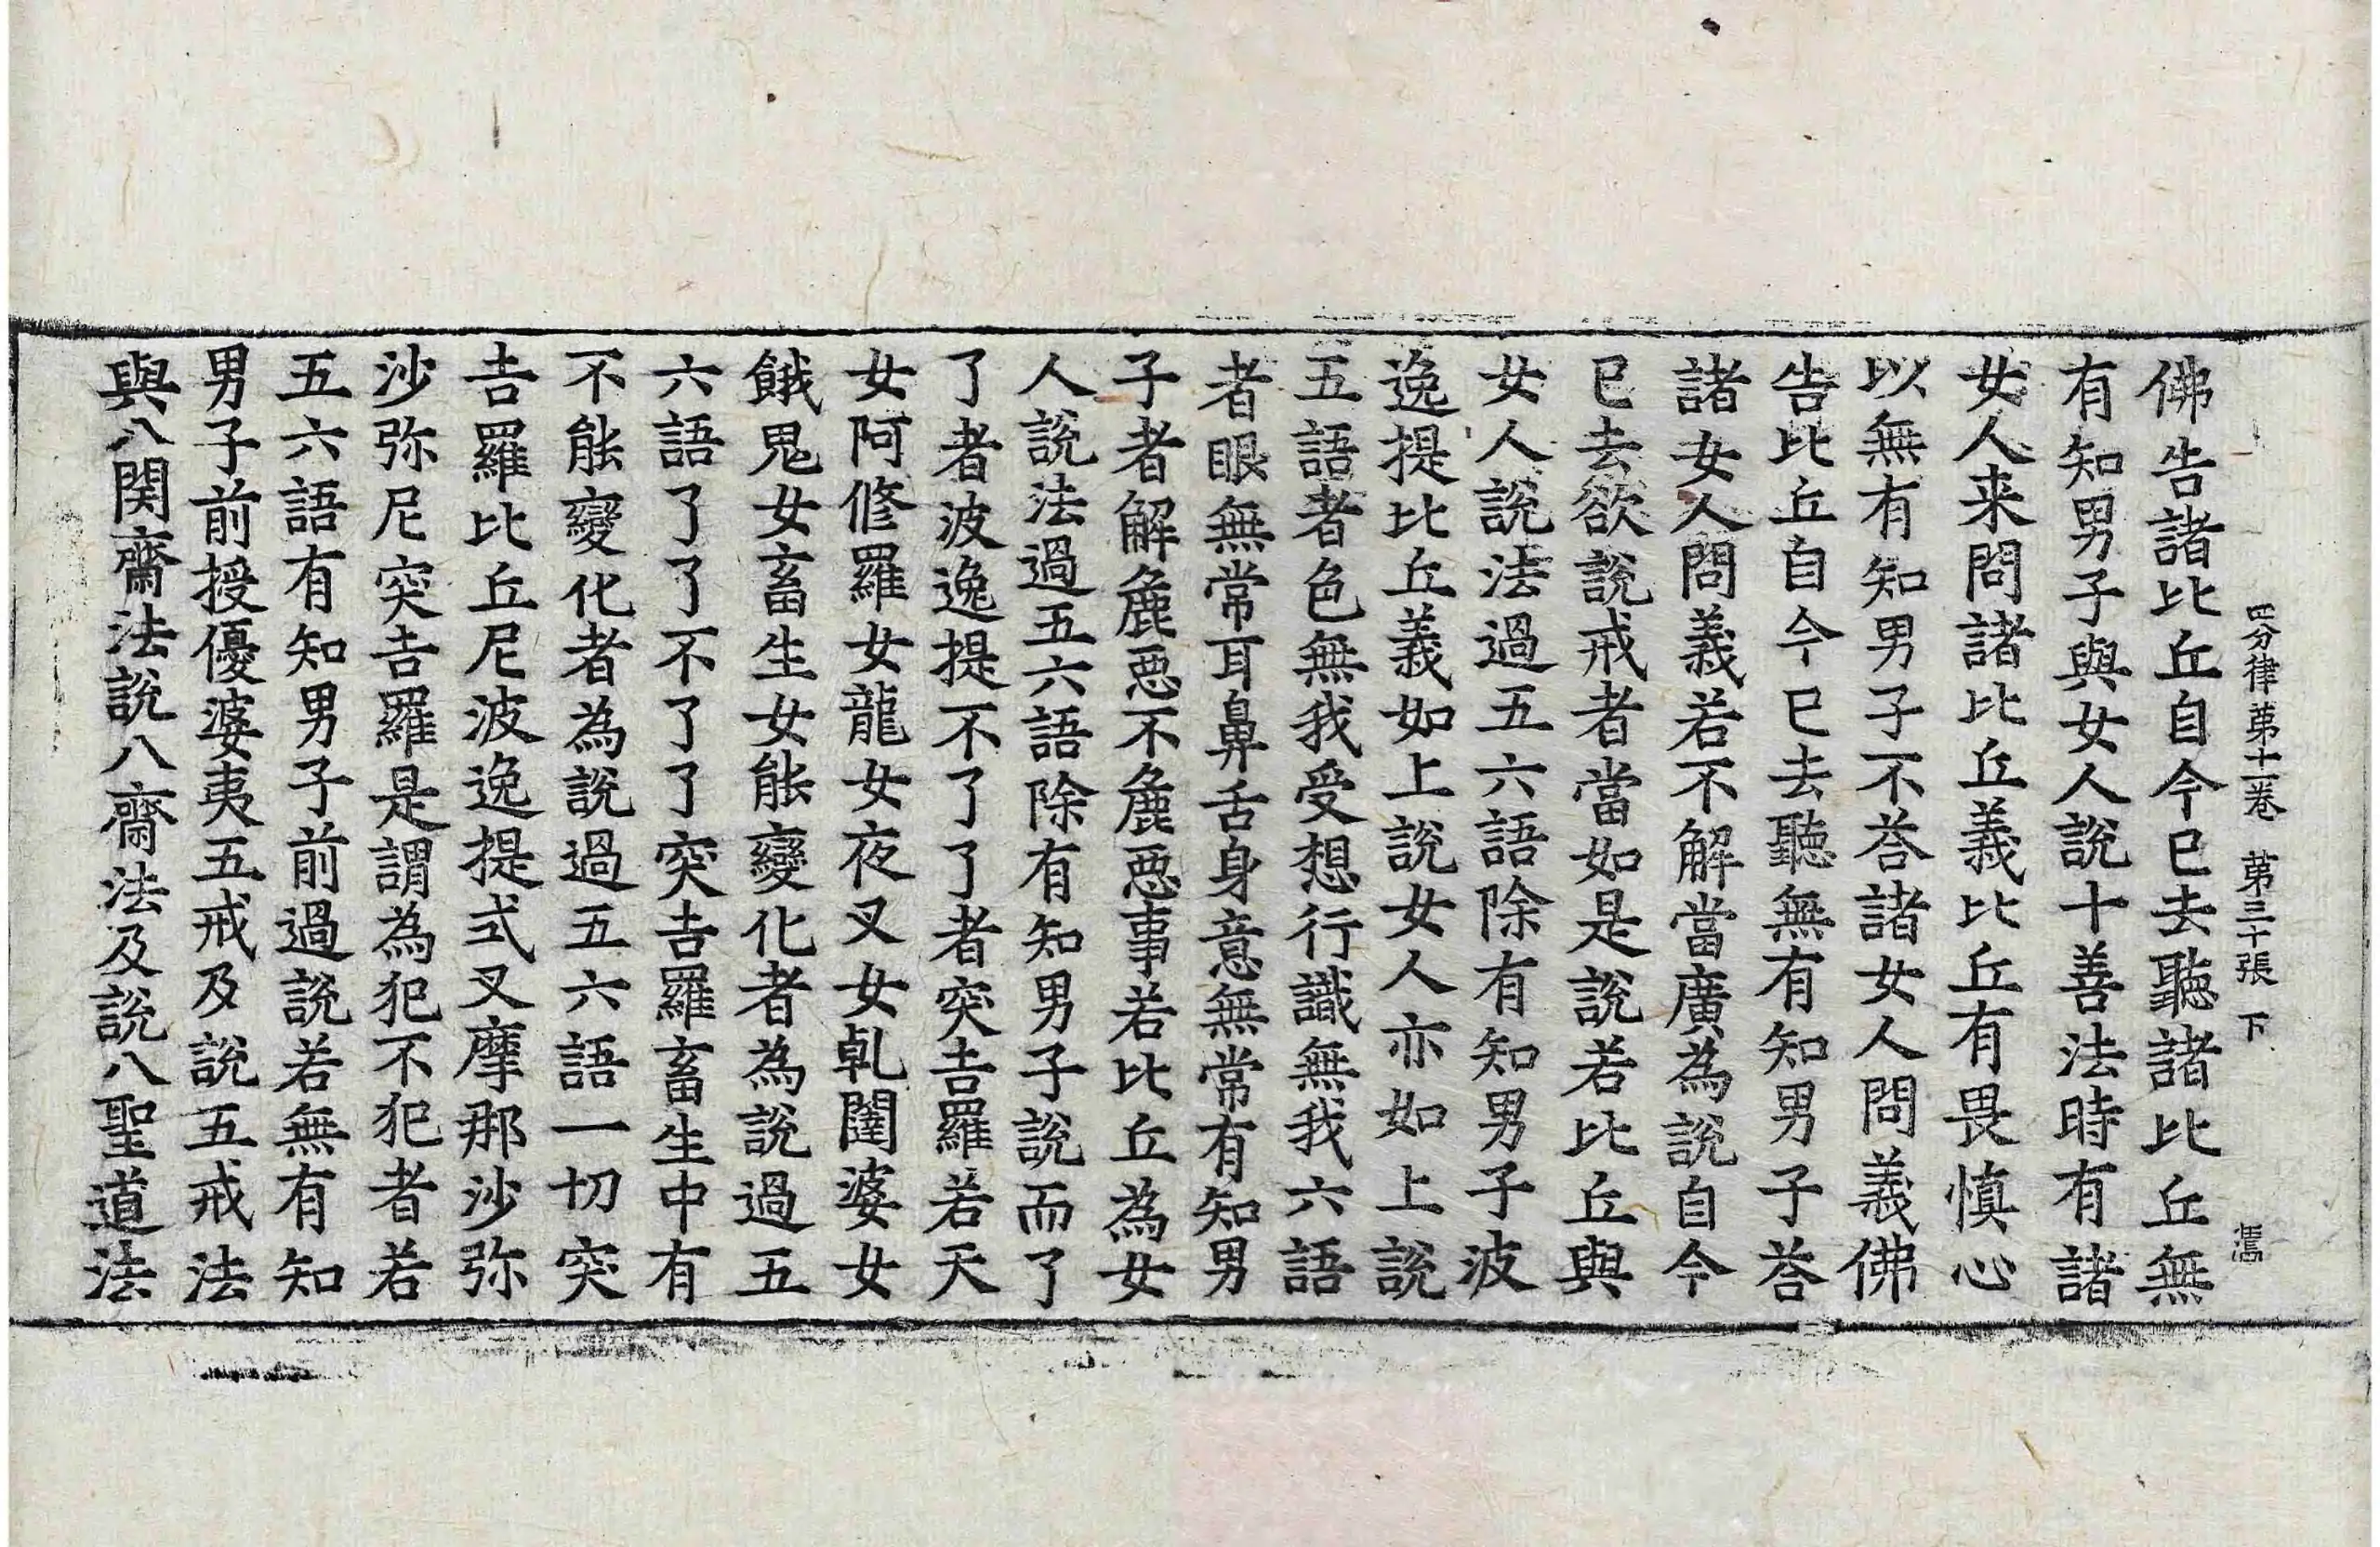 四分律第十一卷　第三十張　下
佛告諸比丘自今已去聽諸比丘無
有知男子與女人說十善法時有諸
女人来問諸比丘義比丘有畏慎心
以無有知男子不荅諸女人問義佛
告比丘自今已去聽無有知男子荅
諸女人問義若不解當廣為說自今
已去欲說戒者當如是說若比丘與
女人說法過五六語除有知男子波
逸提比丘義如上說女人亦如上說
五語者色無我受想行識無我六語
者眼無常耳鼻舌身意無常有知男
子者解麁惡不麁惡事若比丘為女
人說法過五六語除有知男子說而了
了者波逸提不了了者突吉羅若天
女阿修羅女龍女夜叉女乹闥婆女
餓鬼女畜生女能變化者為說過五
六語了了不了了突吉羅畜生中有
不能變化者為說過五六語一切突
吉羅比丘尼波逸提式叉摩那沙弥
沙弥尼突吉羅是謂為犯不犯者若
五六語有知男子前過說若無有知
男子前授優婆夷五戒及說五戒法
與八関齋法說八齋法及說八聖道法